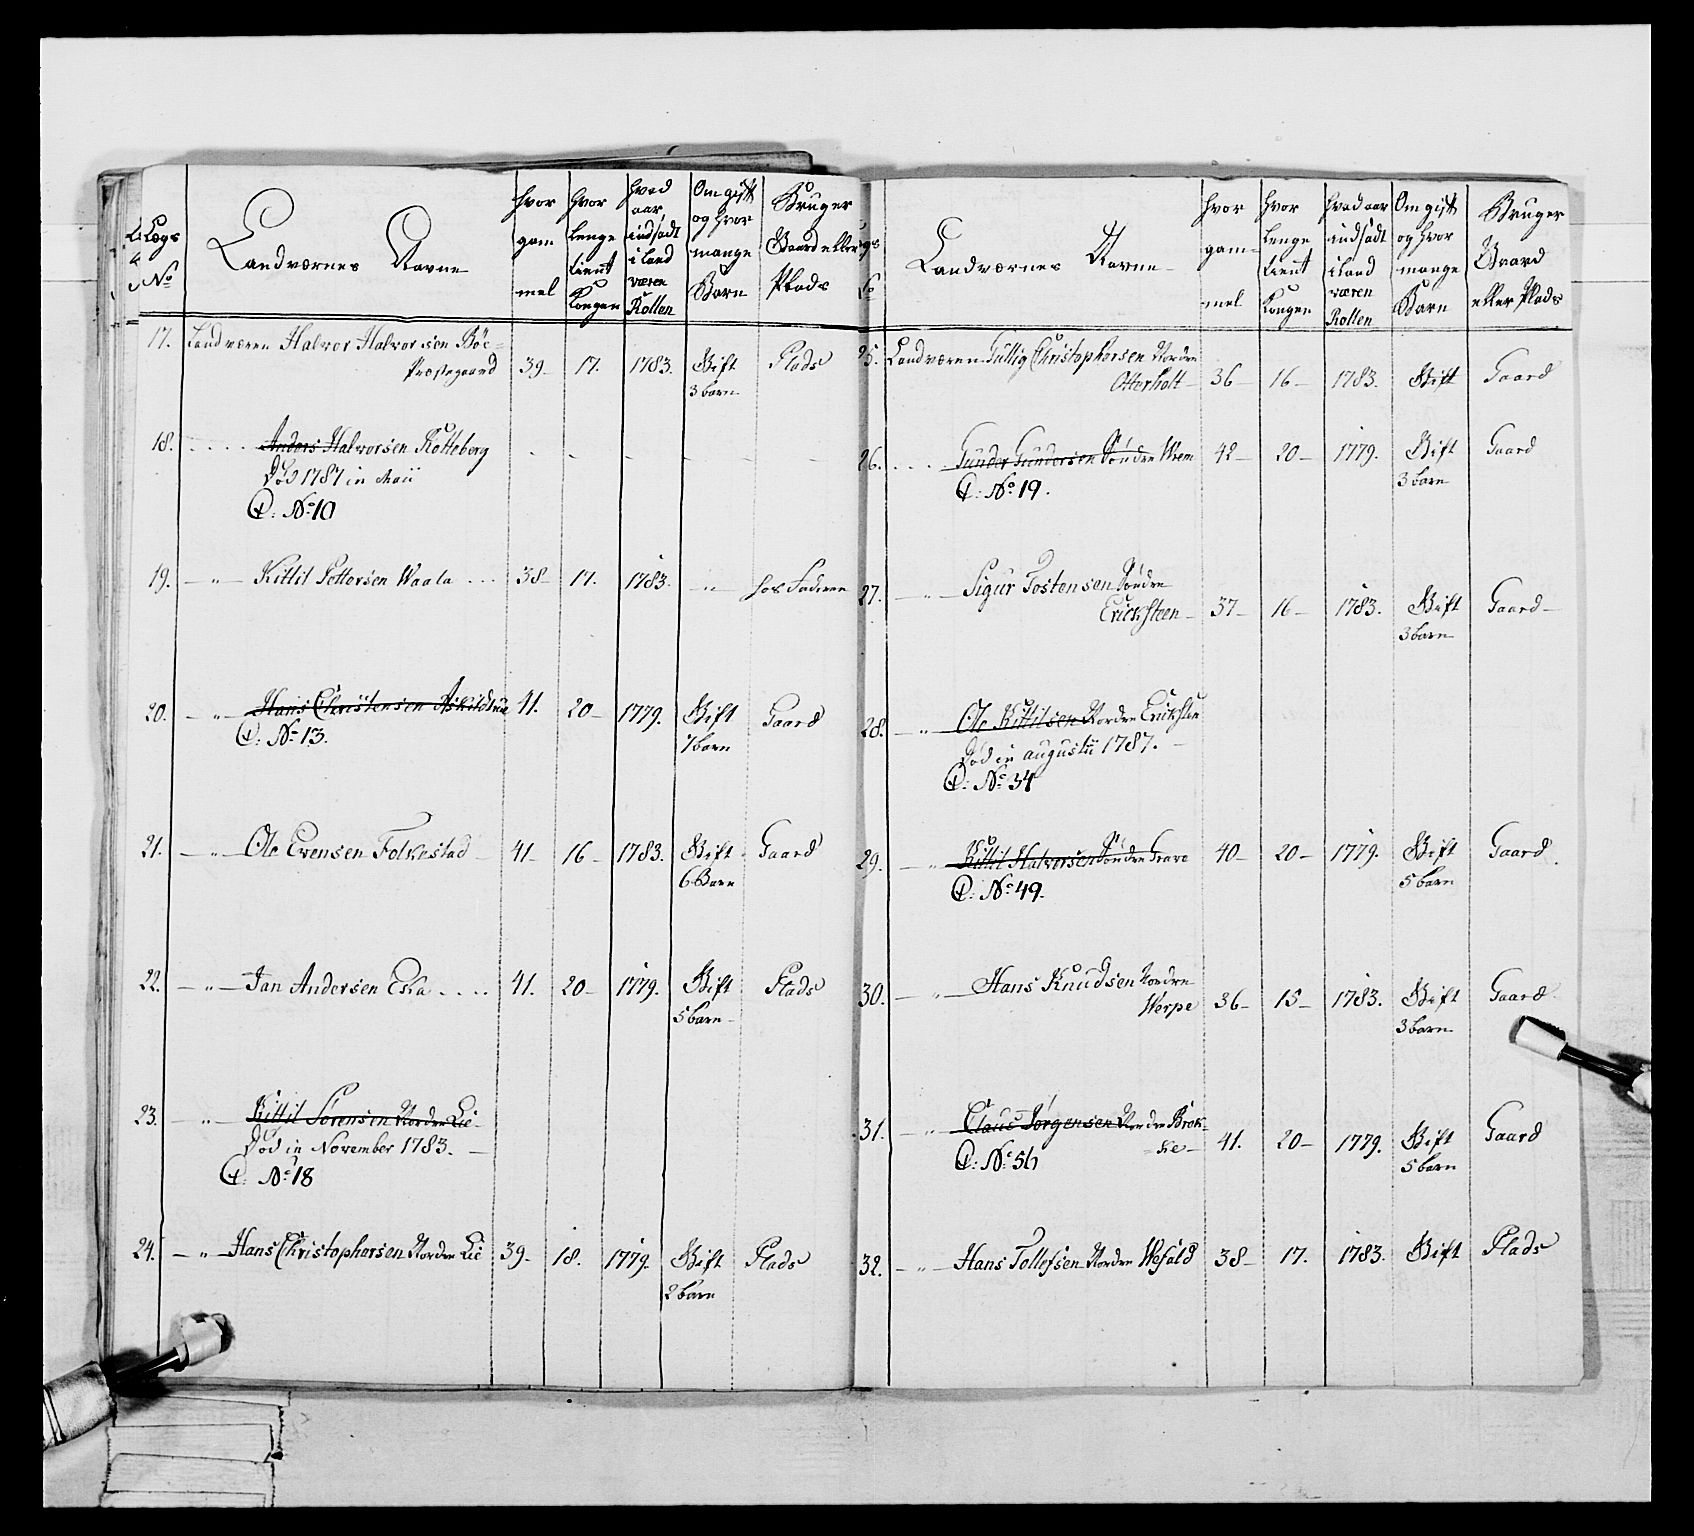 Logs No
Landværnes Navne
hvor gammel
hvor lenge tient Kongen
hvad aar indsadt i land væren Rollen
Om gift og hvor mange Børn
Bruger Gaard eller Plads
17. Landværen Halvor Halvorsen Böe
Præstegaard 39 17. 1783. Gift Plads
3 børn
18. Anders Halvorsen Rotteberg
Död 1787 in Maii
C: No 10
19. — " — Kittil Pettersen Waala 38 17. 1783. — " — hos Faderen
20. — " — Hans Christensen Askildtrûe 41. 20 1779. Gift Gaard
C: No 13. 7 børn
21. — " — Ole Evensen Folkestad 41 16 1783. Gift Gaard
6 Børn
22. — " — Jan Andersen Eika 41. 20 1779. Gift Plads
5 børn
23. — " — Kittil Sörensen Nordre Lie
Död in November 1783.
C: No 18
24. — " — Hans Christophersen Nordre Lie 39. 18. 1779. Gift Plads
2 børn
Landværnes Navne
hvor gammel
hvor lenge tient Kongen
hvad aar indsadt i land væren Rollen
Om gift og hvor mange Børn
Bruger Gaard eller Plads
25. Landværen Gullig Christophersen Nordre
Otterholt 36 16 1783. Gift Gaard
26. Gunder Gundersen Söndre Wrem 42 20 1779. Gift Gaard
C: No 19. 3 børn
27. — " — Sigur Tostensen Söndre
Ericksteen 37 16 1783. Gift Gaard
3 børn
28. — " — Ole Kittilsen Nordre Ericksteen
Död in augustii 1787.
C: No 34
29. — " — Kittil Halvorsen Söndre Grave 40 20 1779. Gift Gaard
C: No 49. 5 børn
30. — " — Hans Knudsen Nordre
Werpe 36 15 1783. Gift Gaard
3 børn
31. — " — Claus Jörgensen Nordre Brok-
ke 41. 20 1779. Gift Gaard
C: No 56 5 børn
32. — " — Hans Tollefsen Nordre Wefald 38 17. 1783. Gift Plads